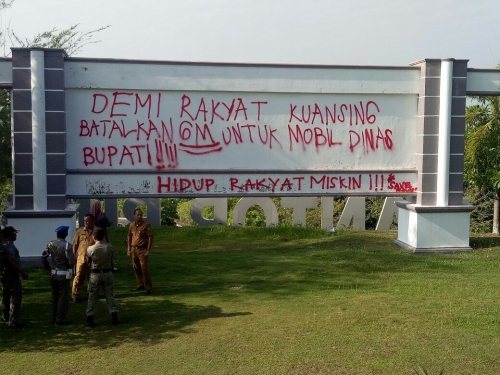 DEMI RAKYAT KUANSING
BATALKAN 6M UNTUK MOBIL DINAS
BUPATI!!!!
HIDUP RAKYAT MISKIN !!! SAVE